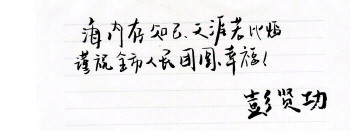 海内存知己、天涯若比邻
谨祝全市人民团圆、幸福!
彭贤功